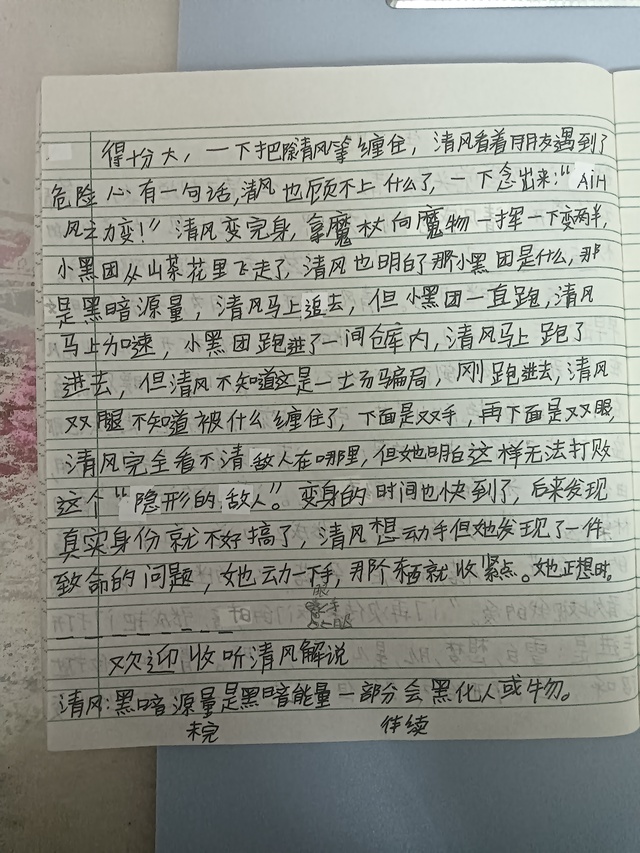 得十分大，一下把除清风等缠住，清风看着朋友遇到了
危险心有一句话，清风也顾不上什么了，一下念出来："AiH
风之力变！"清风变完身，拿魔杖向魔物一挥一下变两半，
小黑团从山茶花里飞走了，清风也明白了那小黑团是什么，那
是黑暗源量，清风马上追去，但小黑团一直跑，清风
马上加速，小黑团跑进了一间仓库内，清风马上跑了
进去，但清风不知道这是一场骗局，刚跑进去，清风
双腿不知道被什么缠住了，下面是双手，再下面是双眼，
清风完全看不清敌人在哪里，但她明白这样无法打败
这个"隐形的敌人"。变身的时间也快到了，后来发现
真实身份就不好搞了，清风想动手但她发现了一件
致命的问题，她动一下手，那个东西就收紧点。她正想时。
欢迎收听清风解说
清风：黑暗源量是黑暗能量一部分会黑化人或物。
未完 待续